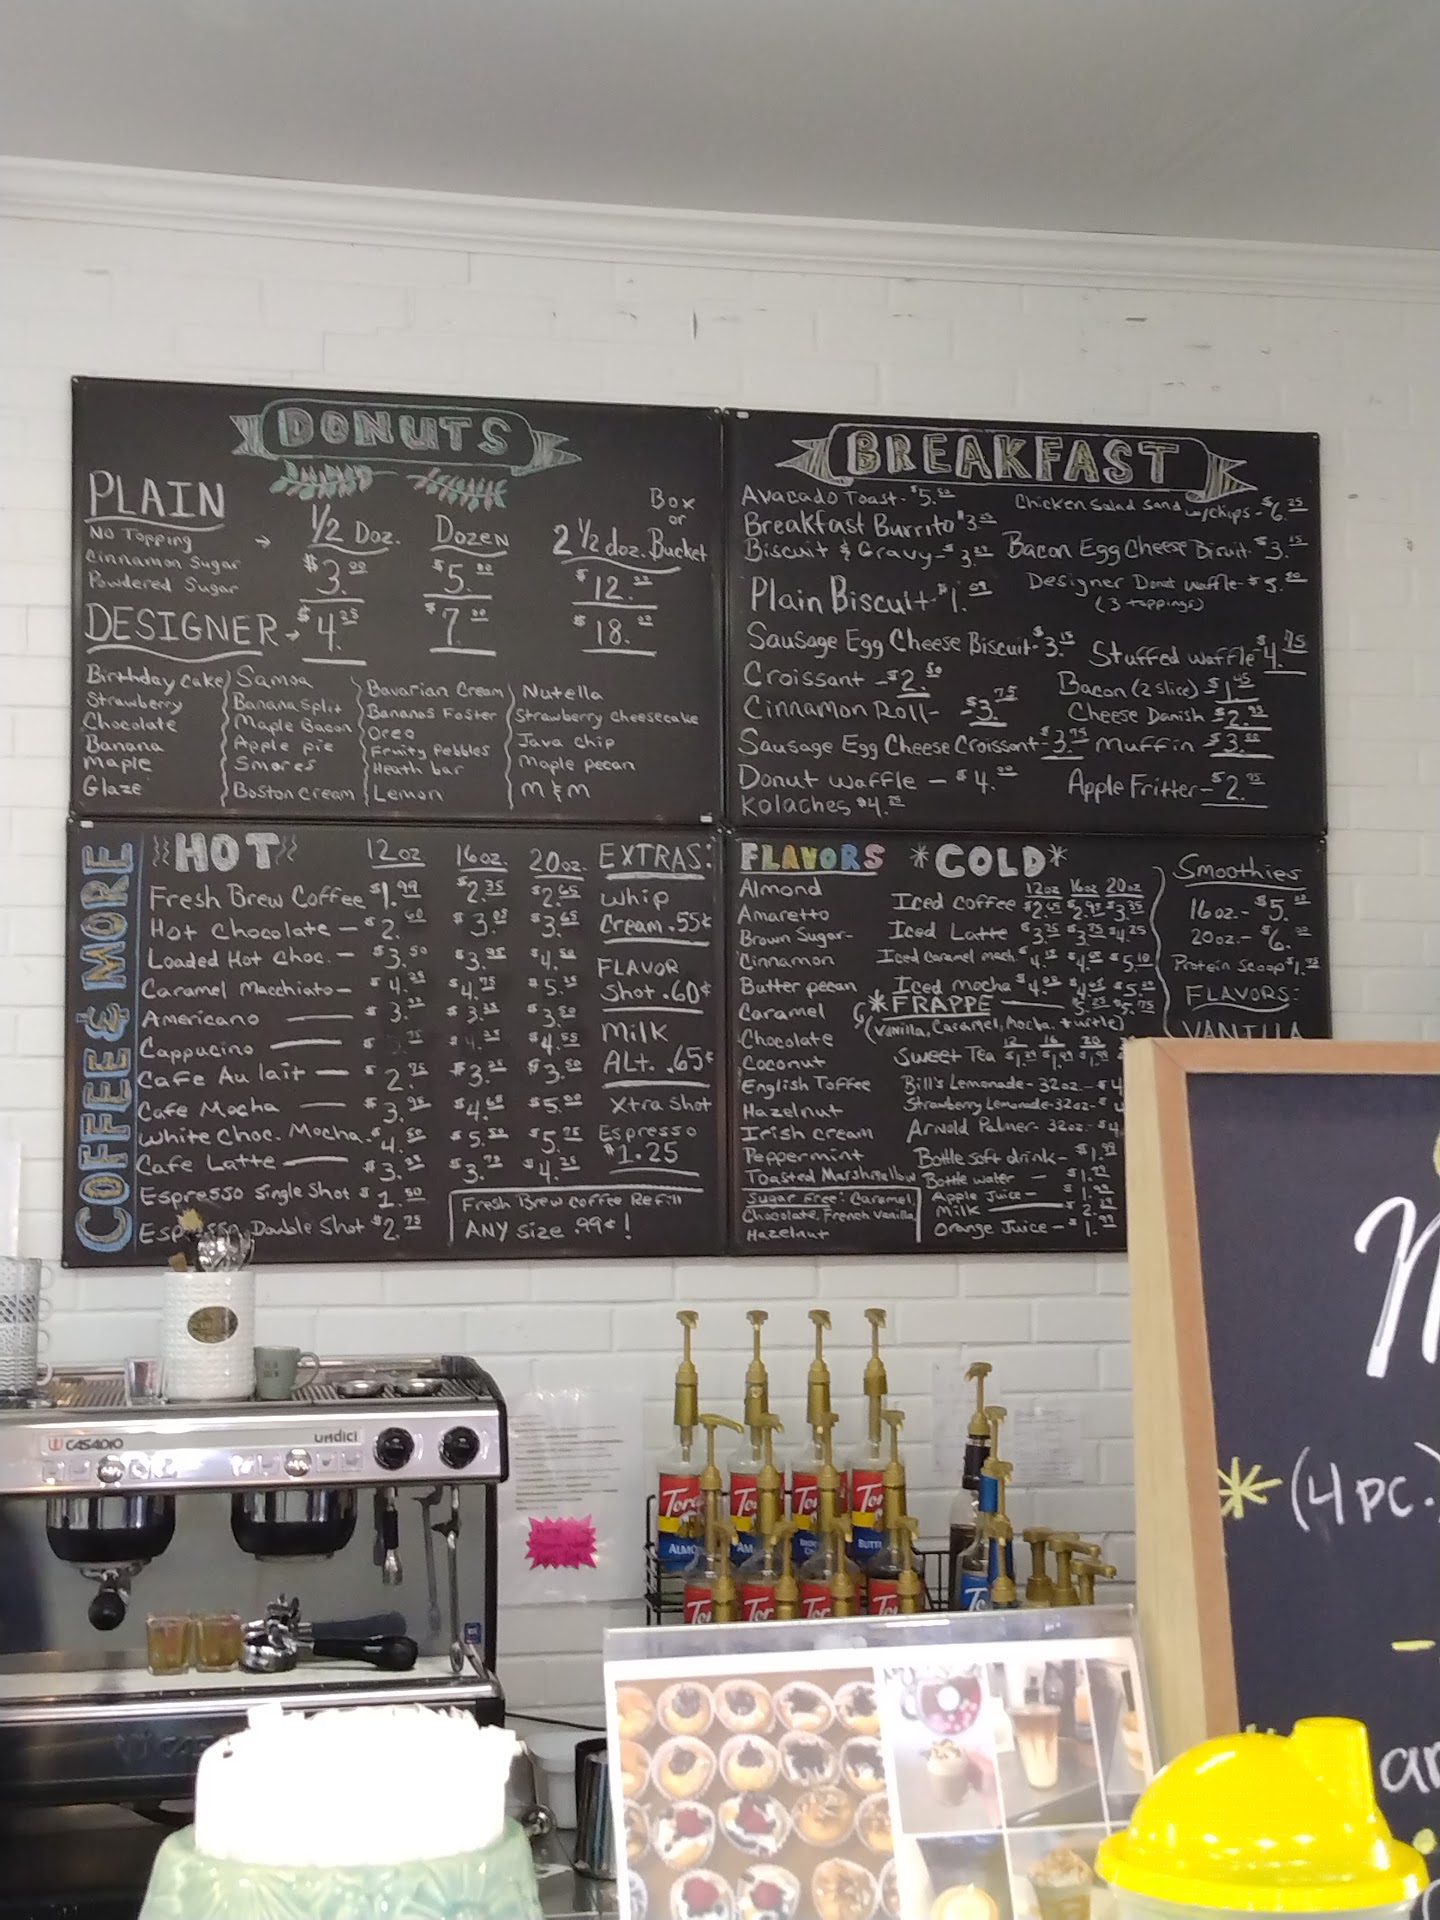 DONUTS
PLAIN
No Topping
Cinnamon Sugar
Powdered Sugar
1/2 Doz. Dozen 2 1/2 doz. Box or Bucket
$3.00 $5.00 $12.00
DESIGNER $4.25 $7.00 $18.00
Birthday cake
Strawberry
Chocolate
Banana
Maple
Glaze
Samoa
Banana Split
Maple Bacon
Apple pie
Smores
Boston cream
Bavarian Cream
Bananas Foster
Oreo
Fruity Pebbles
Heath bar
Lemon
Nutella
Strawberry cheesecake
Java chip
Maple pecan
M&M
BREAKFAST
Avacado Toast - $5.50
Breakfast Burrito $3.
Biscuit & Gravy - $3.
Plain Biscuit - $1.09
Sausage Egg Cheese Biscuit - $3.15
Croissant - $2.50
Cinnamon Roll - $3.75
Sausage Egg Cheese Croissant - $3.75
Donut Waffle - $4.00
Kolaches $4.
Chicken Salad Sand w/chips - $6.25
Bacon Egg Cheese Biscuit - $3.
Designer Donut Waffle - $5.50
(3 toppings)
Stuffed Waffle - $4.75
Bacon (2 slice) - $1.45
Cheese Danish $2.95
Muffin - $3.
Apple Fritter - $2.75
COFFEE & MORE
HOT 12oz 16oz. 20oz.
Fresh Brew Coffee $1.99 $2.35 $2.65
Hot Chocolate - $2.60 $3.05 $3.65
Loaded Hot Choc. - $3.50 $3.95 $4.50
Caramel Macchiato - $4.25 $4.75 $5.25
Americano $3. $3. $3.50
Cappucino $4.25 $4.55
Cafe Au lait - $2.75 $3.25 $3.50
Cafe Mocha $3.95 $4.60 $5.00
White Choc. Mocha - $4.50 $5.50 $5.75
Cafe Latte $3. $3.75 $4.25
Espresso Single Shot $1.50
Espresso Double Shot $2.75
Fresh Brew Coffee Refill
ANY Size .99¢!
EXTRAS:
Whip
Cream .55¢
FLAVOR
Shot .60¢
Milk
ALT. .65¢
Xtra Shot
Espresso
$1.25
FLAVORS
Almond
Amaretto
Brown Sugar-
Cinnamon
Butter pecan
Caramel
Chocolate
Coconut
English Toffee
Hazelnut
Irish cream
Peppermint
Toasted Marshmallow
Sugar free: Caramel,
Chocolate, French Vanilla,
Hazelnut
*COLD*
12oz 16oz 20oz
Iced Coffee $2.45 $2.95 $3.35
Iced Latte $3.25 $3.75 $4.25
Iced Caramel mach. $4. $4. $5.10
Iced mocha $4. $4. $5.
*FRAPPE 5.25 5.75
(Vanilla, Caramel, Mocha, turtle)
12 16 20
Sweet Tea $1. $1. $1.
Bill's Lemonade - 32oz - $4
Strawberry Lemonade - 32oz - $
Arnold Palmer - 32oz - $4
Bottle soft drink - $1.99
Bottle water - $1.
Apple Juice - $1.99
Milk $2.
Orange Juice - $1.99
Smoothies
16oz. - $5.
20oz. - $6.
Protein Scoop $1.75
FLAVORS:
VANILLA
CASADIO undici
ALMO
BUTT
* (4 pc.)